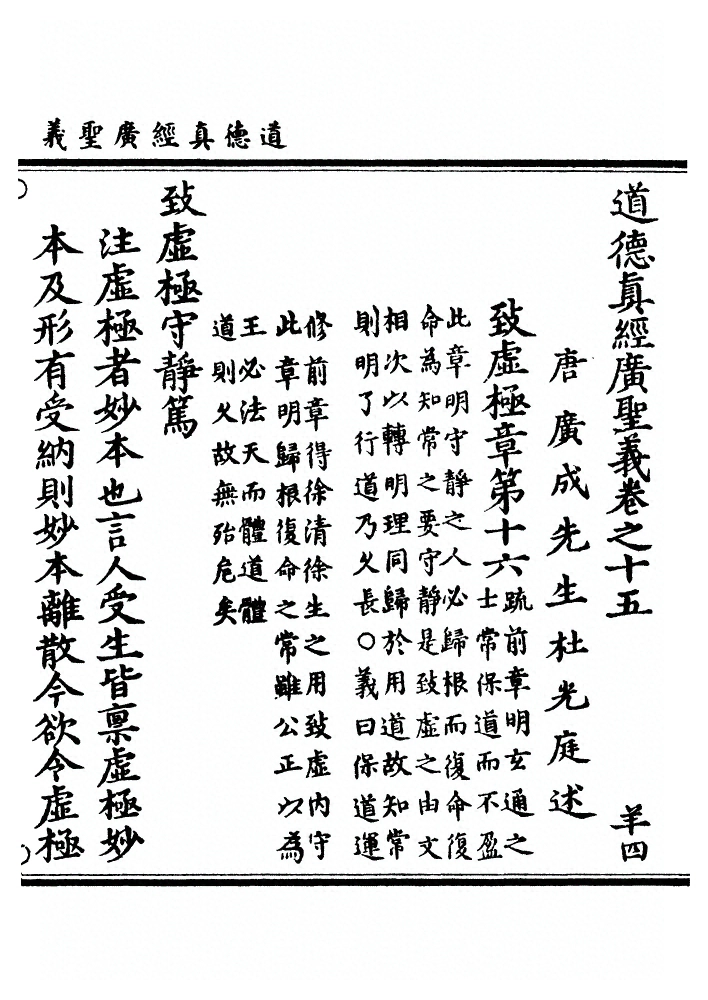 道德真經廣聖義
道德真經廣聖義卷之十五 羊四
唐廣成先生杜光庭述
致虛極章第十六
疏前章明玄通之
士常保道而不盈
此章明守靜之人必歸根而復命復
命為知常之要守靜是致虛之由文
相次以轉明理同歸於用道故知常
則明了行道乃久長○義曰保道運
修前章得徐清徐生之用致虛內守
此章明歸根復命之常雖公正以為
王必法天而體道體
道則久故無殆危矣
致虛極守靜篤
注虛極者妙本也言人受生皆禀虛極妙
本及形有受納則妙本離散今欲令虛極